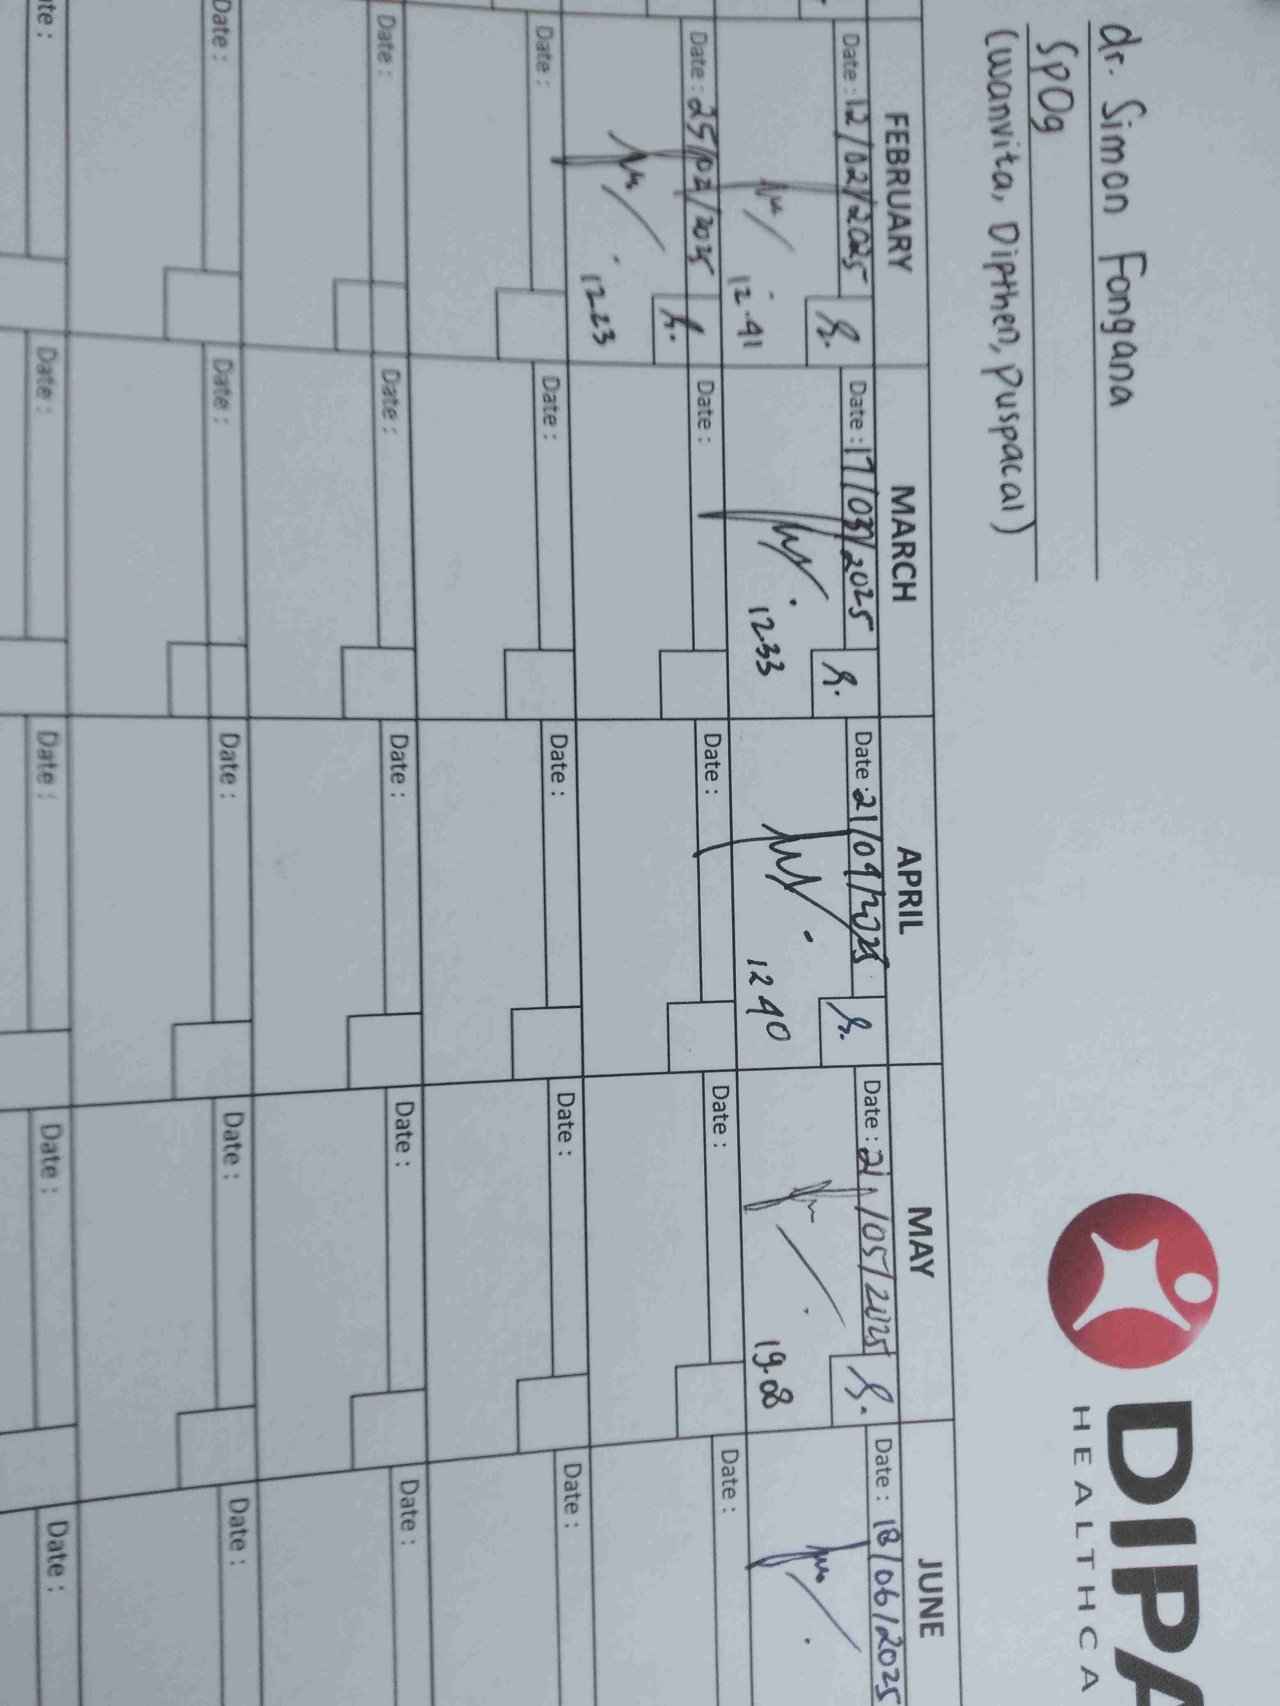 dr. Simon Fongana
SpOg
(wanvita, Dipthen, puspacal)
DIPA
HEALTHCA
FEBRUARY MARCH APRIL MAY JUNE
Date : 12/02/2025 Date : 17/03/2025 Date : 21/04/2025 Date : 21/05/2025 Date : 18/06/2025
12.41 1233 1240 19.08
Date : 25/02/2025 Date : Date : Date : Date :
1223
Date : Date : Date : Date : Date :
Date : Date : Date : Date : Date :
Date : Date : Date : Date : Date :
ate : Date : Date : Date : Date :